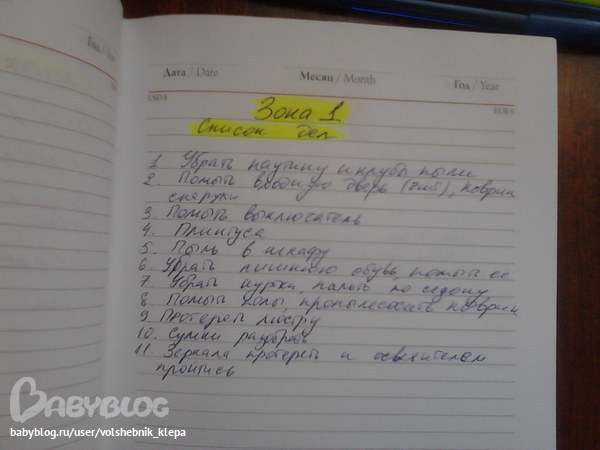 Год /
Дата / Date Месяц / Month Год / Year
USD $ EUR €
Зона 1
Список дел
1. Убрать паутину и клубы пыли
2. Помыть входную дверь (2шт), коврик
снаружи
3. Помыть выключатель
4. Плинтуса
5. Пыль в шкафу
6. Убрать лишнюю обувь, помыть ее
7. Убрать куртки, пальто по сезону
8. Помыть полы, пропылесосить коврик
9. Протереть люстру
10. Сумки разобрать
11. Зеркала протереть и освежителем
пройтись
BABYBLOG
babyblog.ru/user/volshebnik_klepa